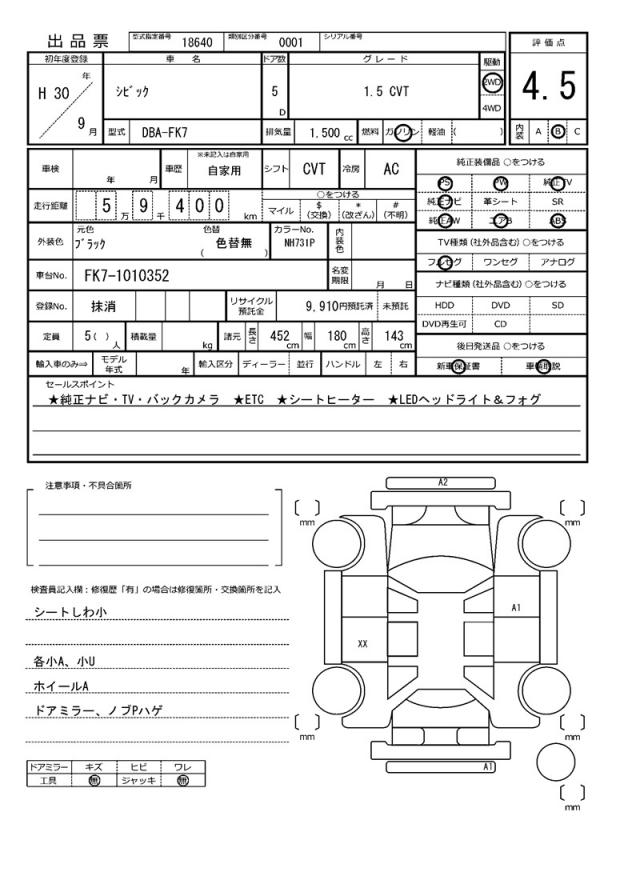 出品票 型式指定番号 18640 類別区分番号 0001 シリアル番号
評価点
4.5
内装 A B C
初年度登録 車名 ドア数 グレード 駆動
H 30 年 9 月
シビック 5 D 1.5 CVT 2WD 4WD
型式 DBA-FK7 排気量 1.500 cc 燃料 ガソリン 軽油 ( )
車検 年 月 車歴 ※未記入は自家用 自家用 シフト CVT 冷房 AC
走行距離 5 万 9 千 4 0 0 km
○をつける
マイル $ (交換) * (改ざん) # (不明)
外装色 元色 ブラック 色替 ( 色替無 ) カラーNo. NH731P 内装色
車台No. FK7-1010352 名変期限 月 日
登録No. 抹消 リサイクル預託金 9,910円預託済 未預託
定員 5( ) 人 積載量 kg 諸元 長さ 452 cm 幅 180 cm 高さ 143 cm
輸入車のみ⇒ モデル年式 年 輸入区分 ディーラー 並行 ハンドル 左 右
純正装備品 ○をつける
PS PW 純正TV
純正ナビ 革シート SR
純正AW エアB ABS
TV種類 (社外品含む) ○をつける
フルセグ ワンセグ アナログ
ナビ種類 (社外品含む) ○をつける
HDD DVD SD
DVD再生可 CD
後日発送品 ○をつける
新車保証書 車輌取説
セールスポイント
★純正ナビ・TV・バックカメラ ★ETC ★シートヒーター ★LEDヘッドライト＆フォグ
注意事項・不具合箇所
検査員記入欄：修復歴「有」の場合は修復箇所・交換箇所を記入
シートしわ小
各小A、小U
ホイールA
ドアミラー、ノブPハゲ
ドアミラー キズ ヒビ ワレ
工具 無 ジャッキ 無
A2
mm
mm
A1
XX
mm
mm
A1
mm